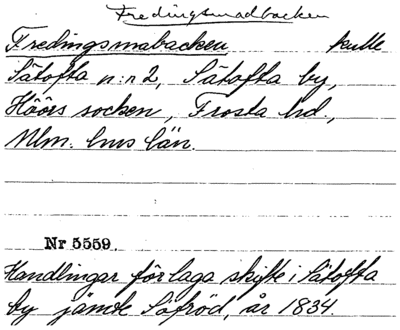 Fredingsmadbacken
Fredingsmabacken kulle
Sätofta n:r 2, Sätofta by,
Höörs socken, Frosta hd.,
Mlm. hus län.
Nr 5559.
Handlingar för laga skifte i Sätofta
by jämte Sofröd, år 1834.